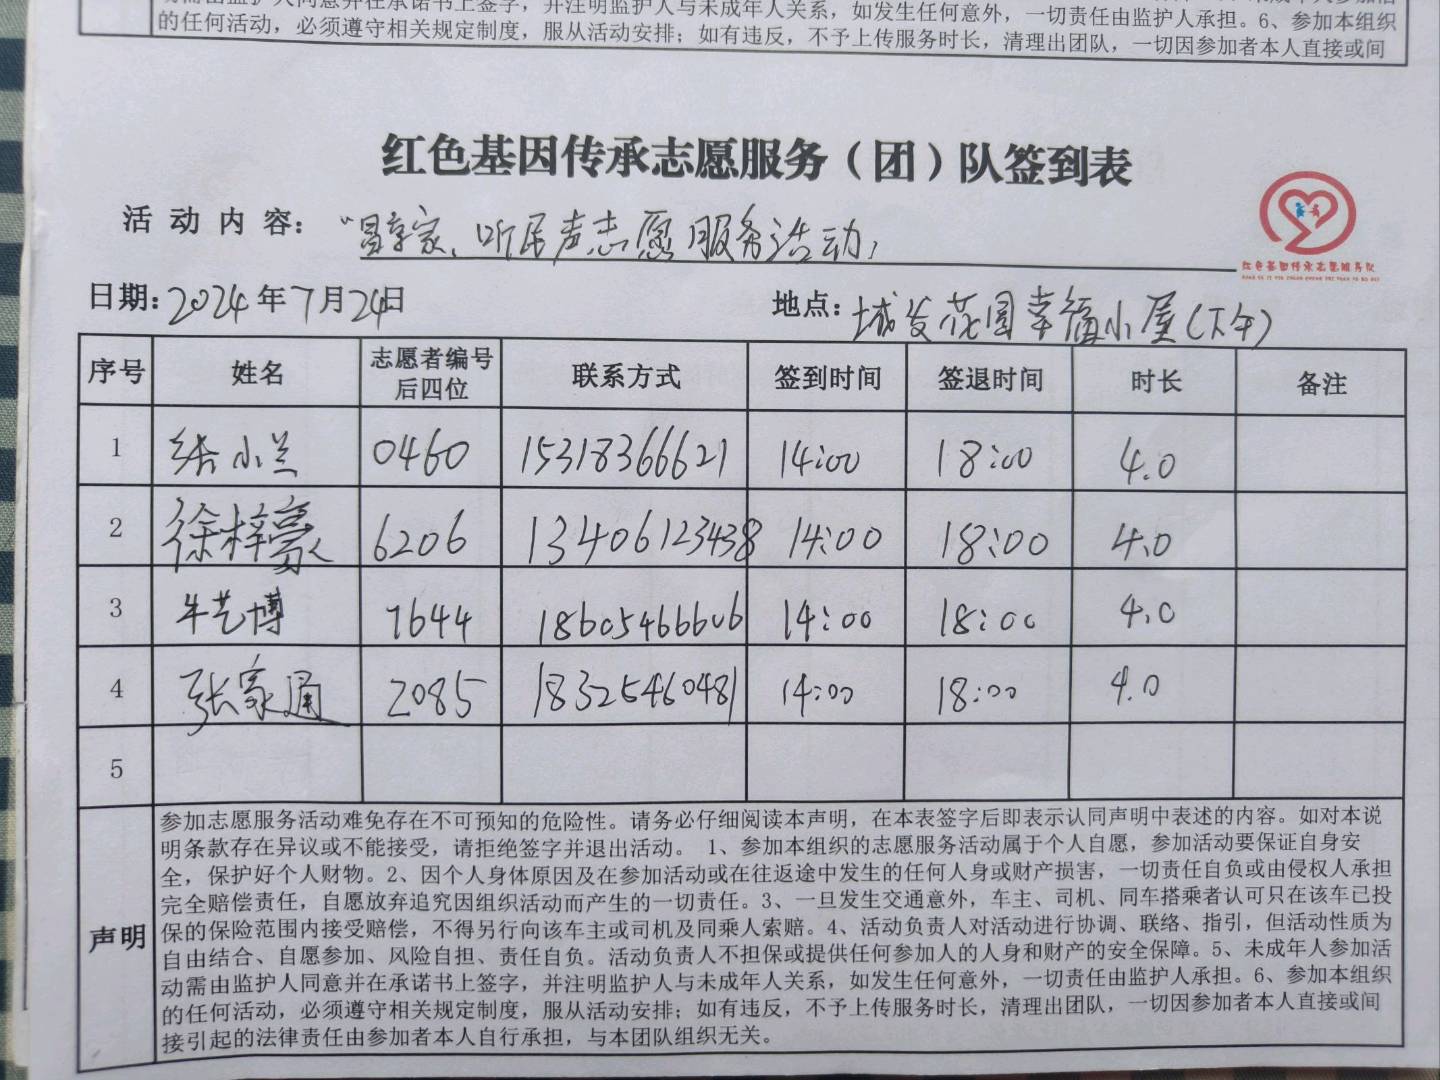 的任何活动，必须遵守相关规定制度，服从活动安排；如有违反，不予上传服务时长，清理出团队，一切因参加者本人直接或间
红色基因传承志愿服务（团）队签到表
活动内容：听民声志愿服务活动
红色基因传承志愿服务队
日期：2024年7月24日 地点：城发花园幸福小屋(下午)
序号 姓名 志愿者编号后四位 联系方式 签到时间 签退时间 时长 备注
1 张小兰 0460 15318366621 14:00 18:00 4.0
2 徐梓豪 6206 13406123438 14:00 18:00 4.0
3 牛艺博 7644 18605466606 14:00 18:00 4.0
4 张家通 2085 18325460481 14:00 18:00 4.0
5
声明
参加志愿服务活动难免存在不可预知的危险性。请务必仔细阅读本声明，在本表签字后即表示认同声明中表述的内容。如对本说
明条款存在异议或不能接受，请拒绝签字并退出活动。 1、参加本组织的志愿服务活动属于个人自愿，参加活动要保证自身安
全，保护好个人财物。2、因个人身体原因及在参加活动或在往返途中发生的任何人身或财产损害，一切责任自负或由侵权人承担
完全赔偿责任，自愿放弃追究因组织活动而产生的一切责任。3、一旦发生交通意外，车主、司机、同车搭乘者认可只在该车已投
保的保险范围内接受赔偿，不得另行向该车主或司机及同乘人索赔。4、活动负责人对活动进行协调、联络、指引，但活动性质为
自由结合、自愿参加、风险自担、责任自负。活动负责人不担保或提供任何参加人的人身和财产的安全保障。5、未成年人参加活
动需由监护人同意并在承诺书上签字，并注明监护人与未成年人关系，如发生任何意外，一切责任由监护人承担。6、参加本组织
的任何活动，必须遵守相关规定制度，服从活动安排；如有违反，不予上传服务时长，清理出团队，一切因参加者本人直接或间
接引起的法律责任由参加者本人自行承担，与本团队组织无关。